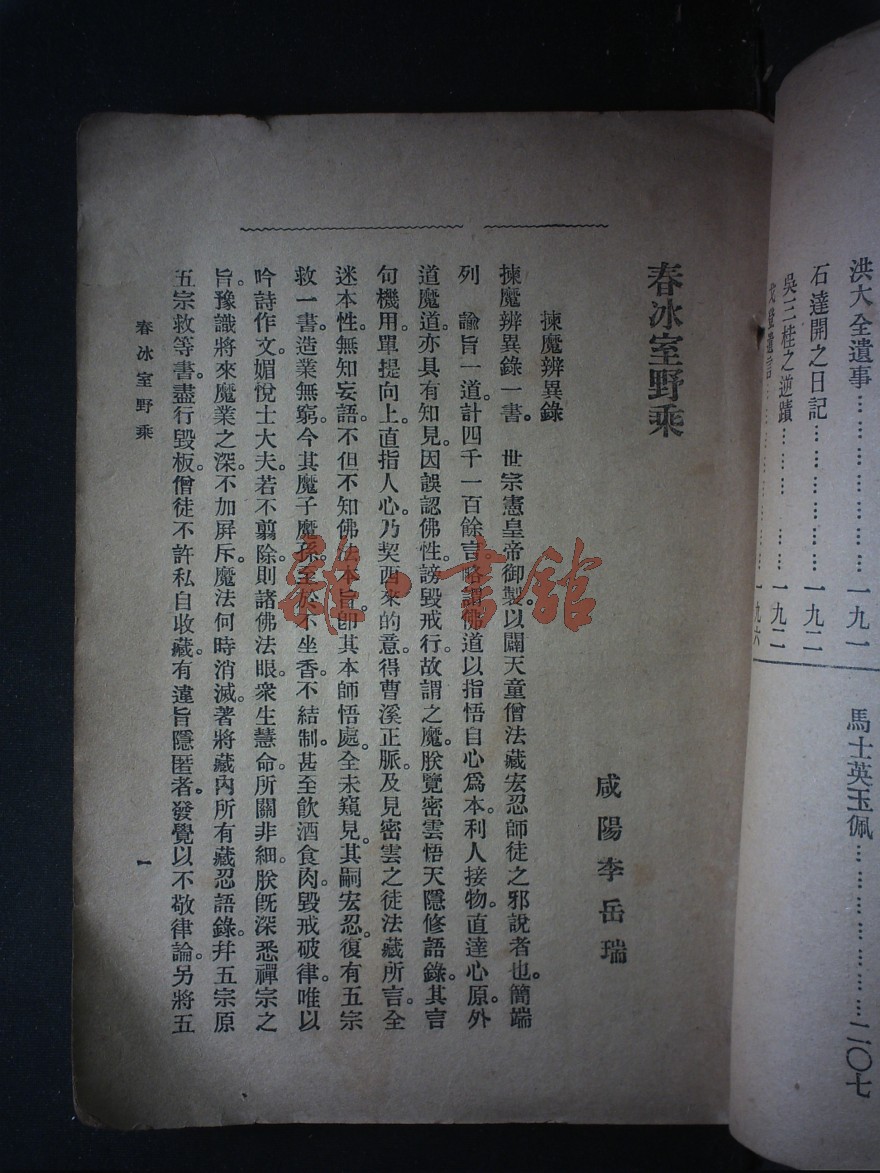 洪大全遺事……………………一九一
石達開之日記…………………一九二
吳三桂之逆蹟…………………一九二
遺言…………………一九六
馬士英玉佩……………………二〇七
春冰室野乘
咸陽李岳瑞
揀魔辨異錄
揀魔辨異錄一書。 世宗憲皇帝御製。以闢天童僧法藏宏忍師徒之邪說者也。簡端
列 諭旨一道。計四千一百餘言。略謂佛道以指悟自心爲本。利人接物。直達心原。外
道魔道。亦具有知見。因誤認佛性。謗毀戒行。故謂之魔。朕覽密雲悟天隱修語錄。其言
句機用。單提向上。直指人心。乃契西來的意。得曹溪正脈。及見密雲之徒法藏所言。全
迷本性。無知妄語。不但不知佛法本旨。卽其本師悟處。全未窺見。其嗣宏忍。復有五宗
救一書。造業無窮。今其魔子魔孫。至於不坐香。不結制。甚至飮酒食肉。毀戒破律。唯以
吟詩作文。媚悅士大夫。若不翦除。則諸佛法眼。衆生慧命。所關非細。朕旣深悉禪宗之
旨。豫識將來魔業之深。不加屛斥。魔法何時消滅。著將藏內所有藏忍語錄。幷五宗原
五宗救等書。盡行毀板。僧徒不許私自收藏。有違旨隱匿者。發覺以不敬律論。另將五
春冰室野乘
一
雜·書館